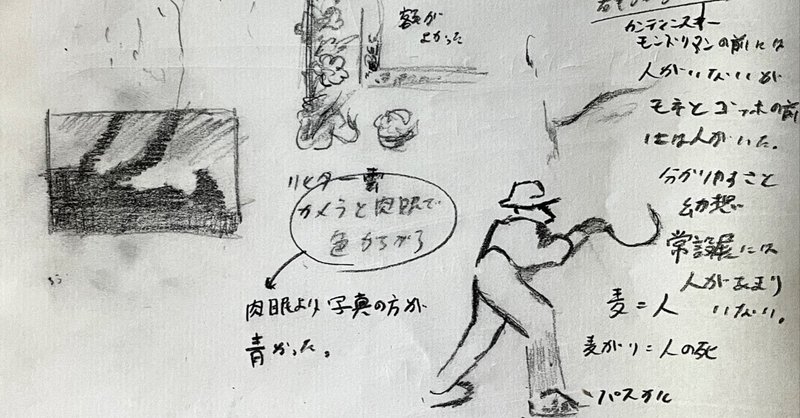 額が
よかった
カンディンスキー
モンドリアンの前には
人がいないが
モネとゴッホの前
には人がいた。
分かりやすさと
幻想
常設展には
人があまり
いない。
リヒター 雲
カメラと肉眼で
色がちがう
肉眼より写真の方が
青かった。
麦=人
麦がり=人の死
パスカル